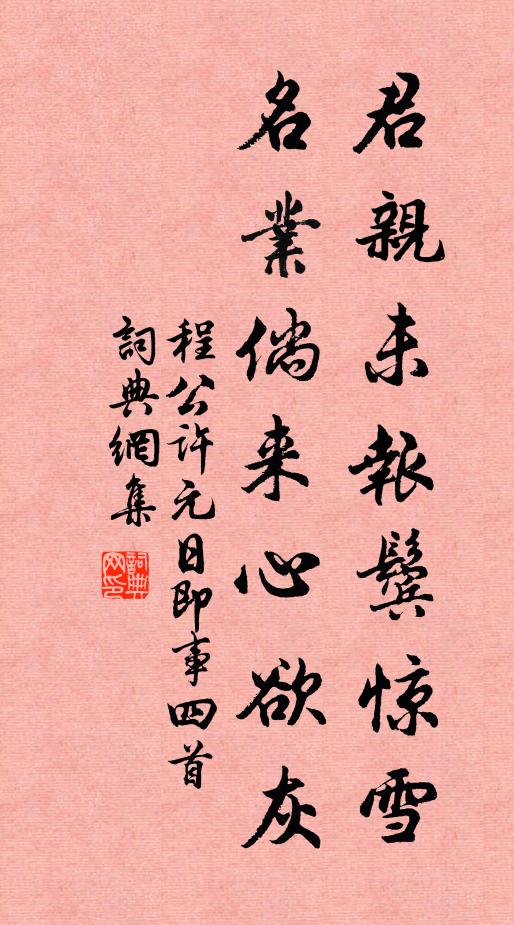 君親未報鬓惊雪
名業倘来心欲灰
程公许元日即事四首
詞典網集
詞典
网印